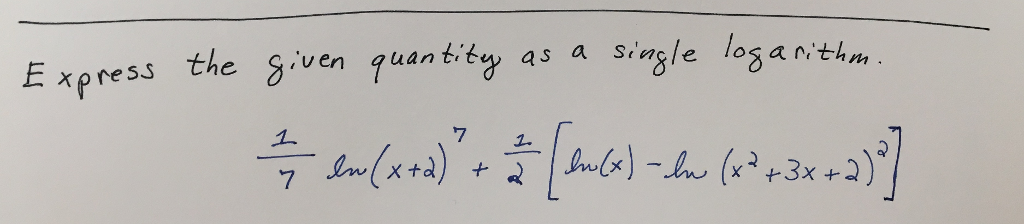 Express the given quantity as a single logarithm.
1/7 ln(x+2)^7 + 1/2 [ln(x) - ln(x^2+3x+2)^2]